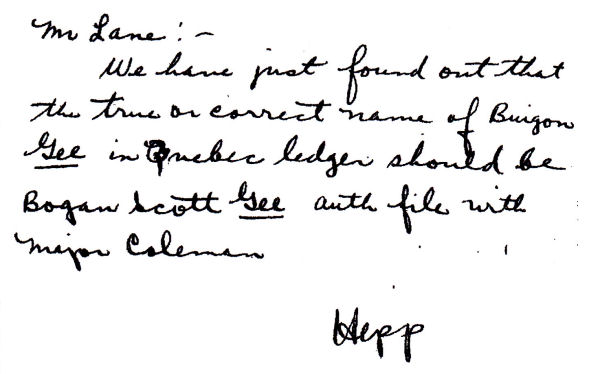 Mr Lane:-
We have just found out that
the true or correct name of Burgon
Gee in Quebec ledger should be
Bogan Scott Gee auth file with
Major Coleman
Hepp